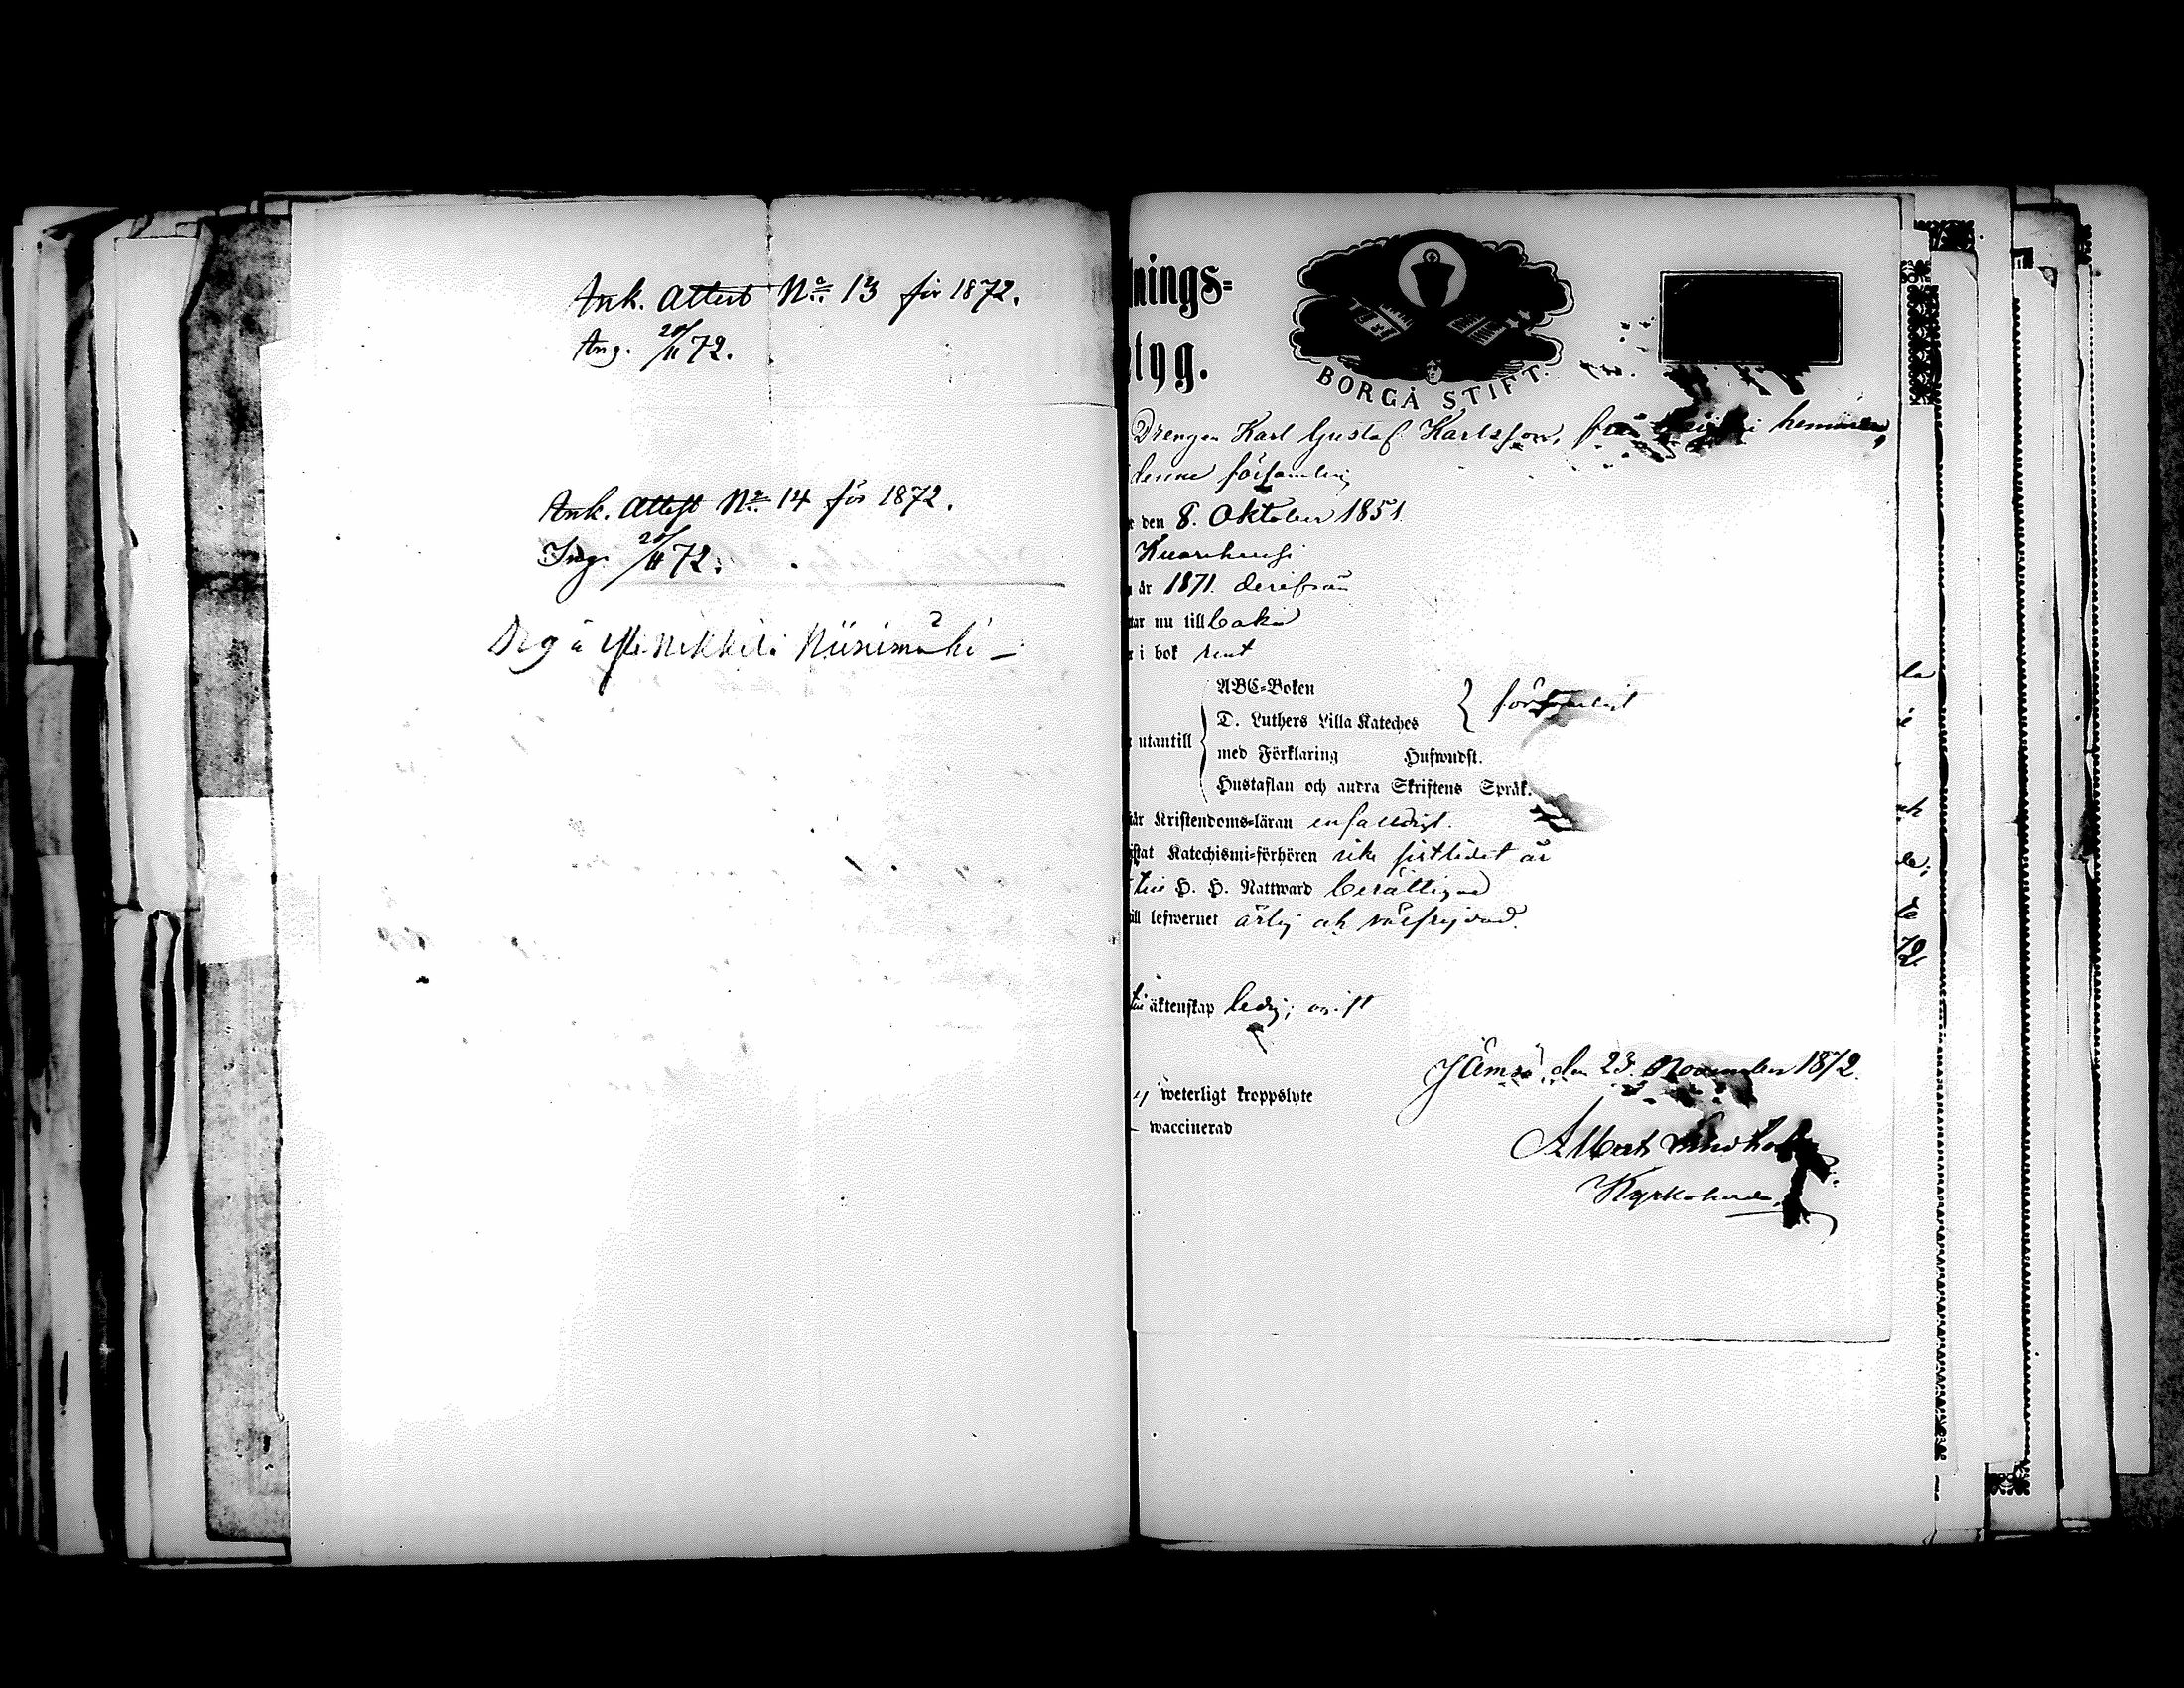 Ank. Attest No 13 för 1872.
Ang. 20/11 72.
Ank. Attest No 14 för 1872.
Ing. 20/11 72.
Niinimäki
nings=
tyg.
BORGÅ STIFT.
Drengen Karl Gustaf Karlsson, från hemman,
denne församling
den 8. Oktober 1851.
Kuorehenſi
år 1871. derifrån
nu till baka
i bok rent
ABC=Boken
D. Luthers Lilla Kateches
utantill
med Förklaring Hufwudst.
försvarligt
Hustaflan och andra Skriftens Språk.
Kristendoms=läran enfaldigt.
Katechismi=förhören sistlidet år
H. H. Nattward berättigad
till lefwernet ärlig och välfrejdad.
äktenskap ledig; ogift
Jämsä, den 23. November 1872.
weterligt kroppslyte
waccinerad
Albert Lindholm
Kyrkoherde.
la
72